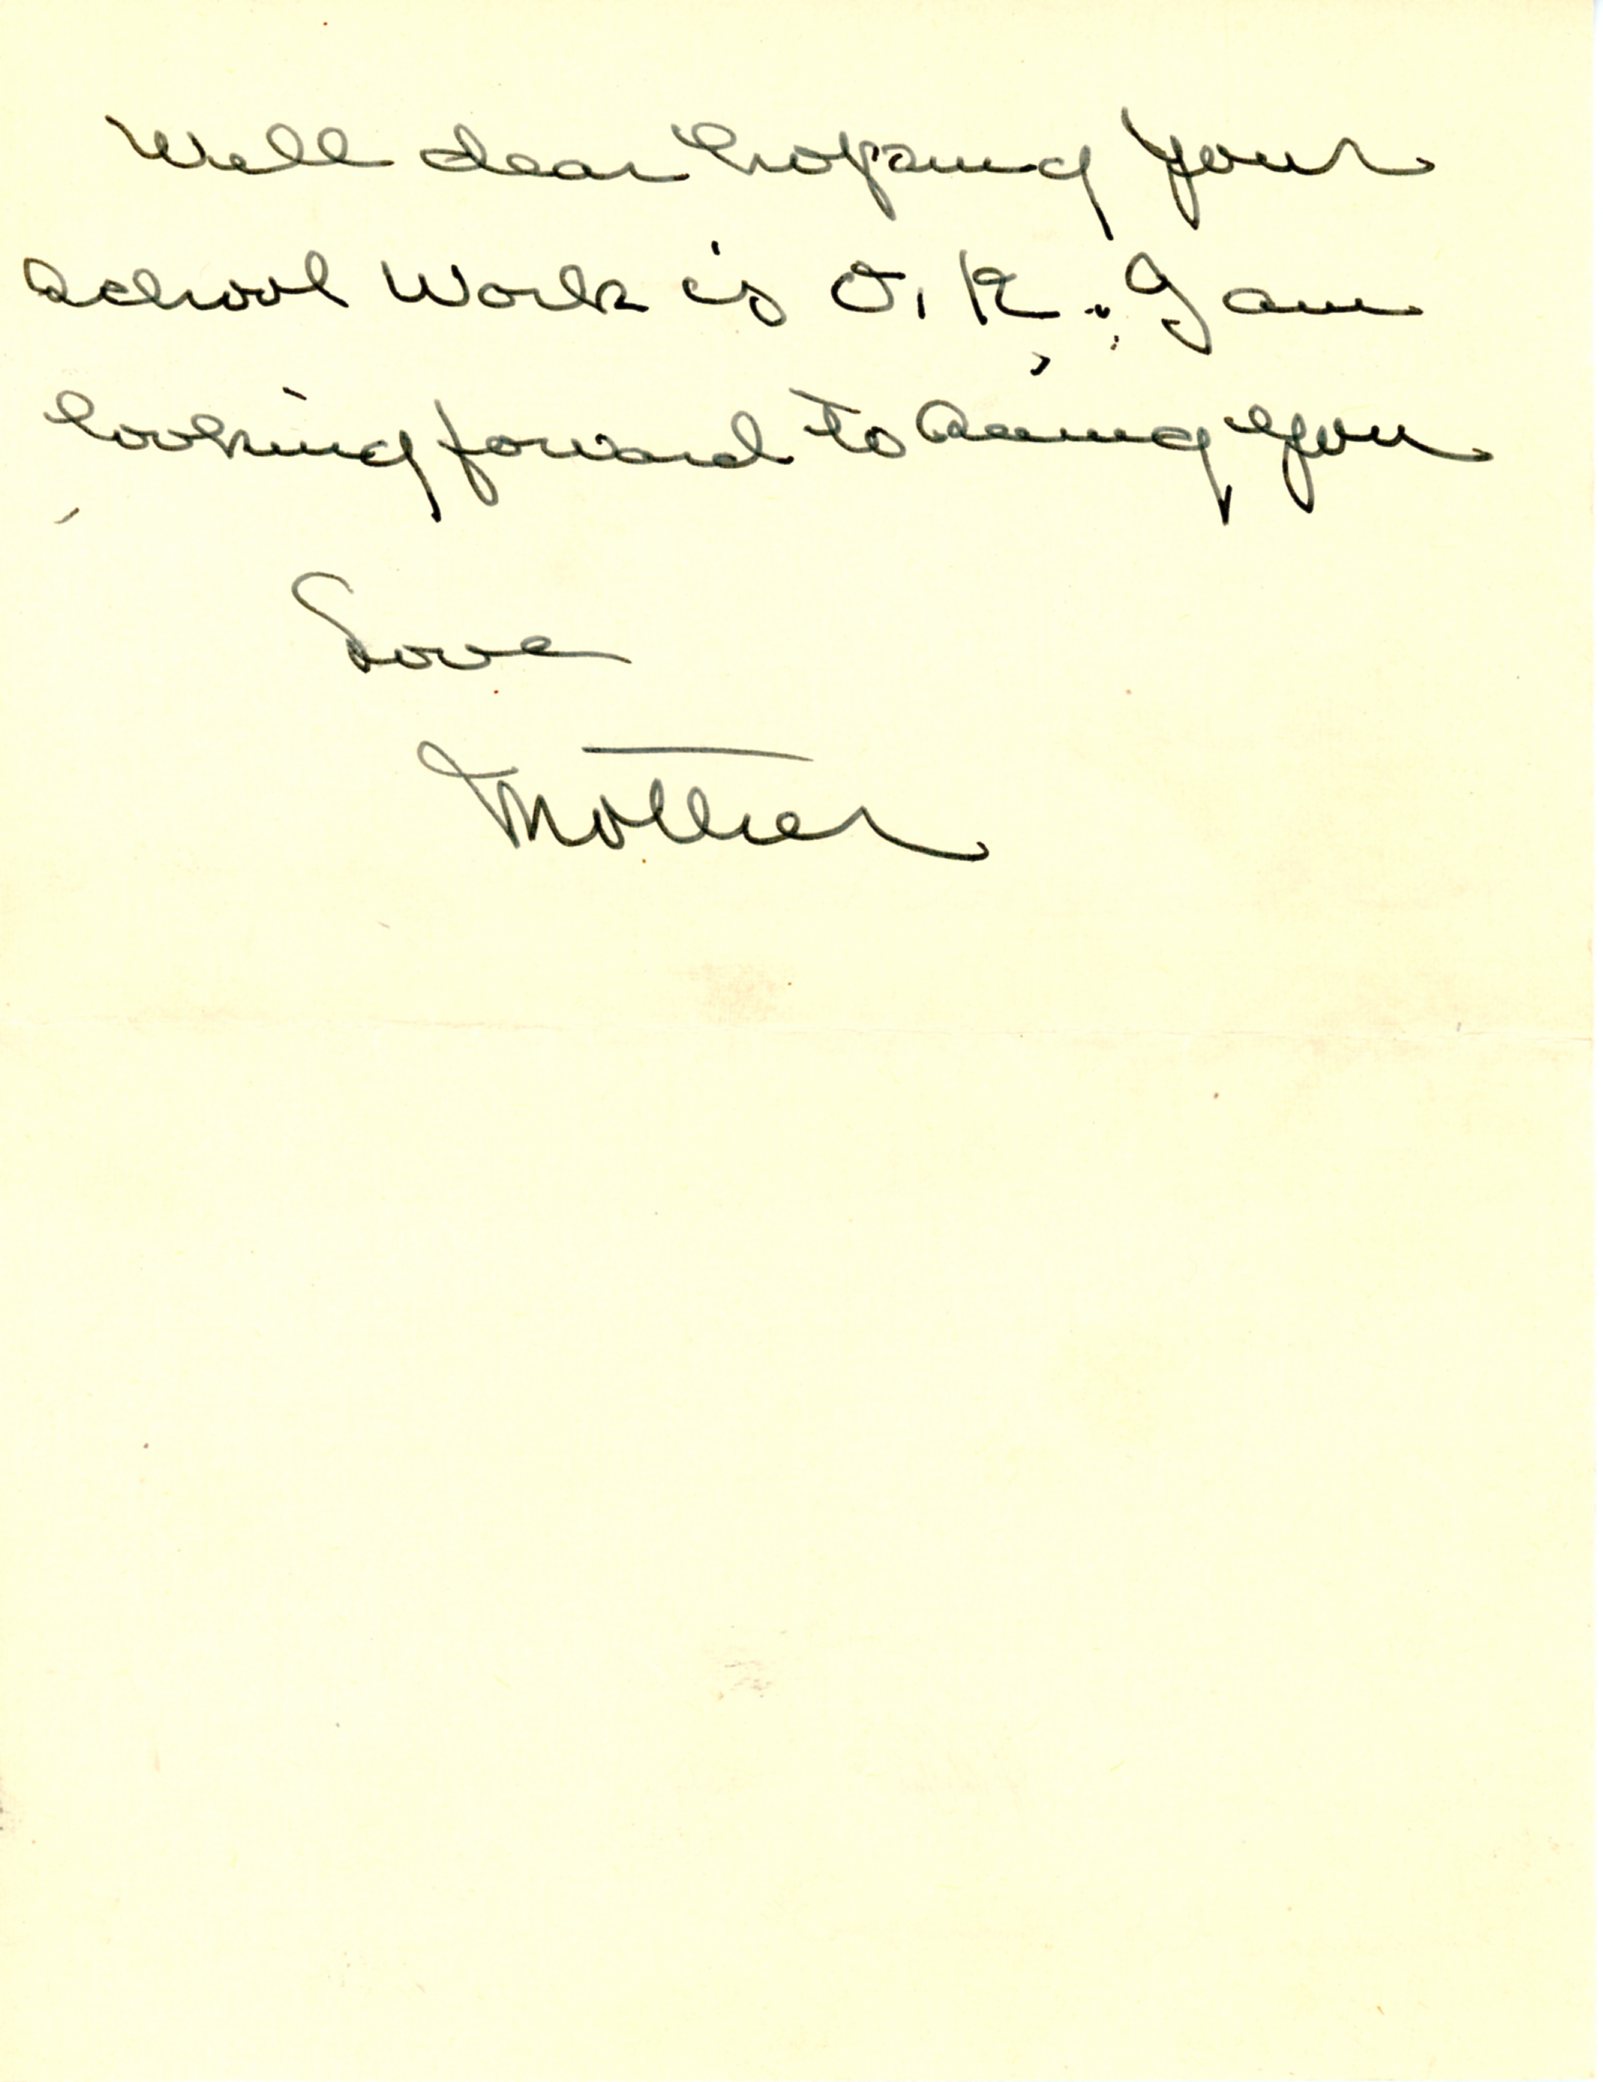 Well dear hoping your
school work is O.K. I am
looking forward to seeing you
Love
Mother